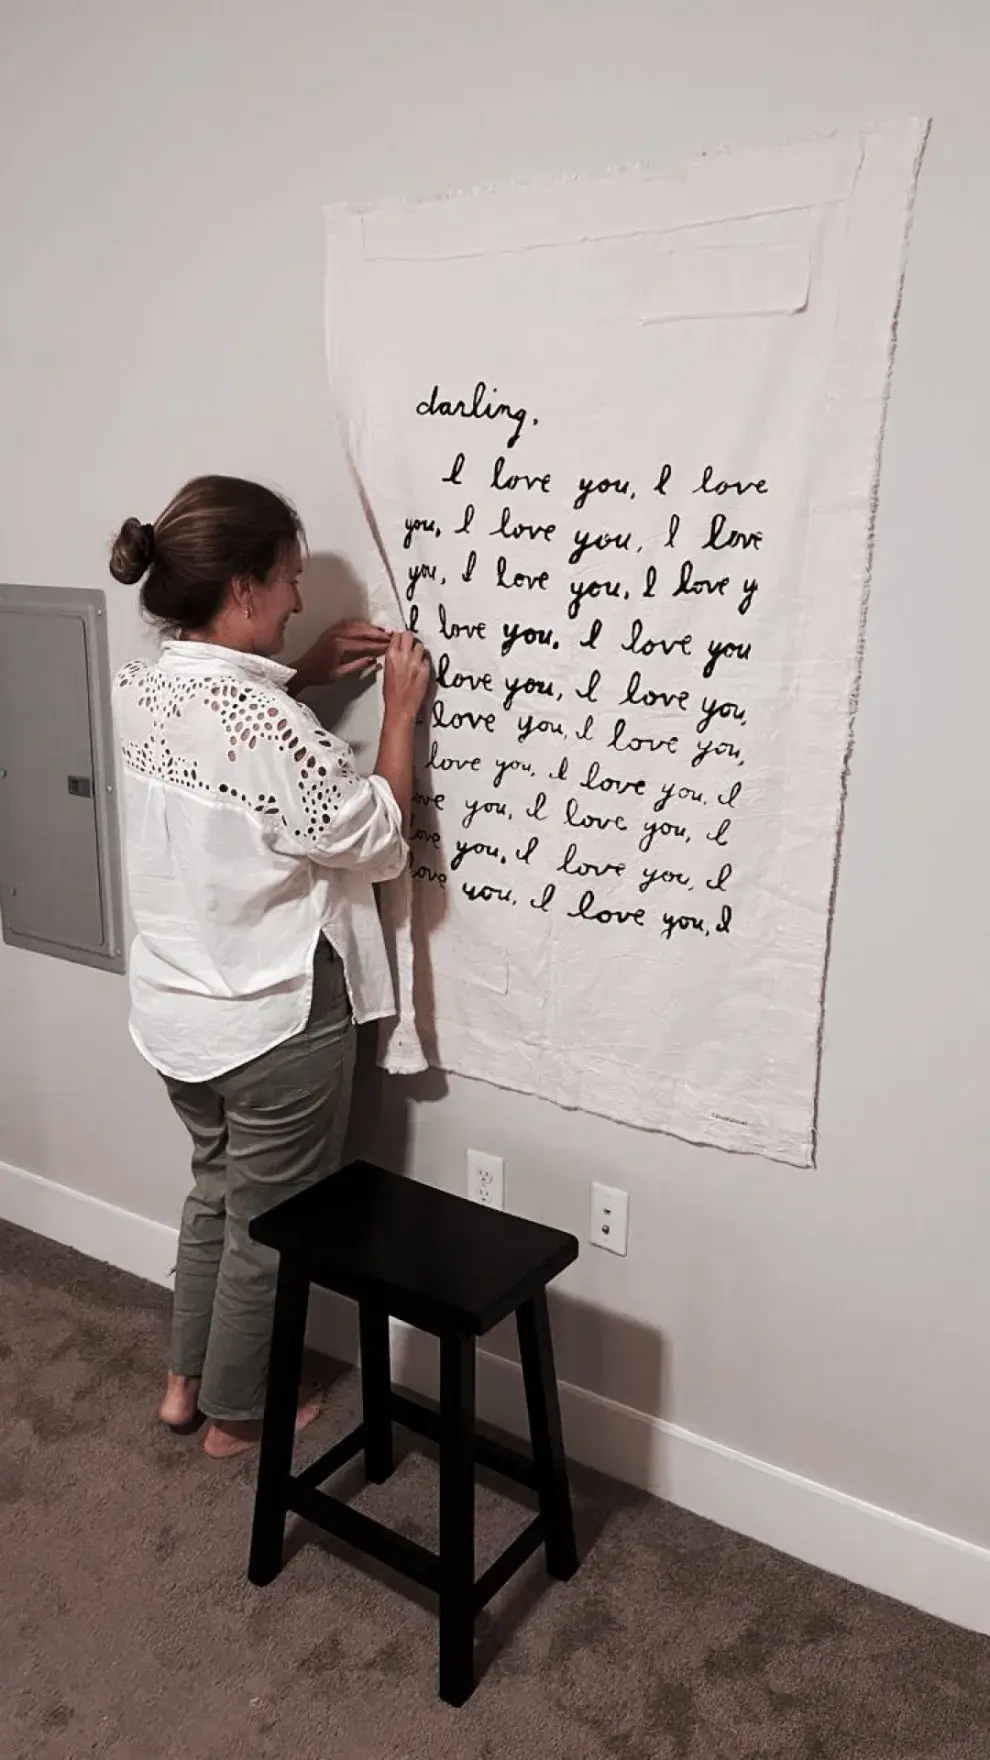 darling,
I love you, I love
you, I love you, I love
you, I love you, I love y
I love you, I love you
love you, I love you,
love you, I love you,
love you, I love you, I
you, I love you, I
love you, I love you, I
love you, I love you, I